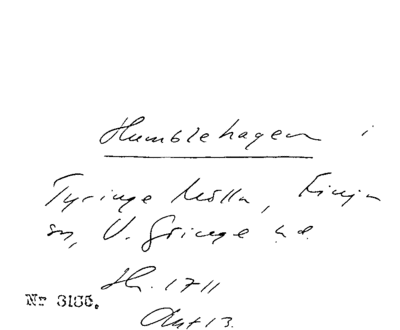 Humblehagen i
Tyringe Mölla, Finja
sn, V. Göinge h.d.
Hr. 1711
Akt 13.
Nr 3135.